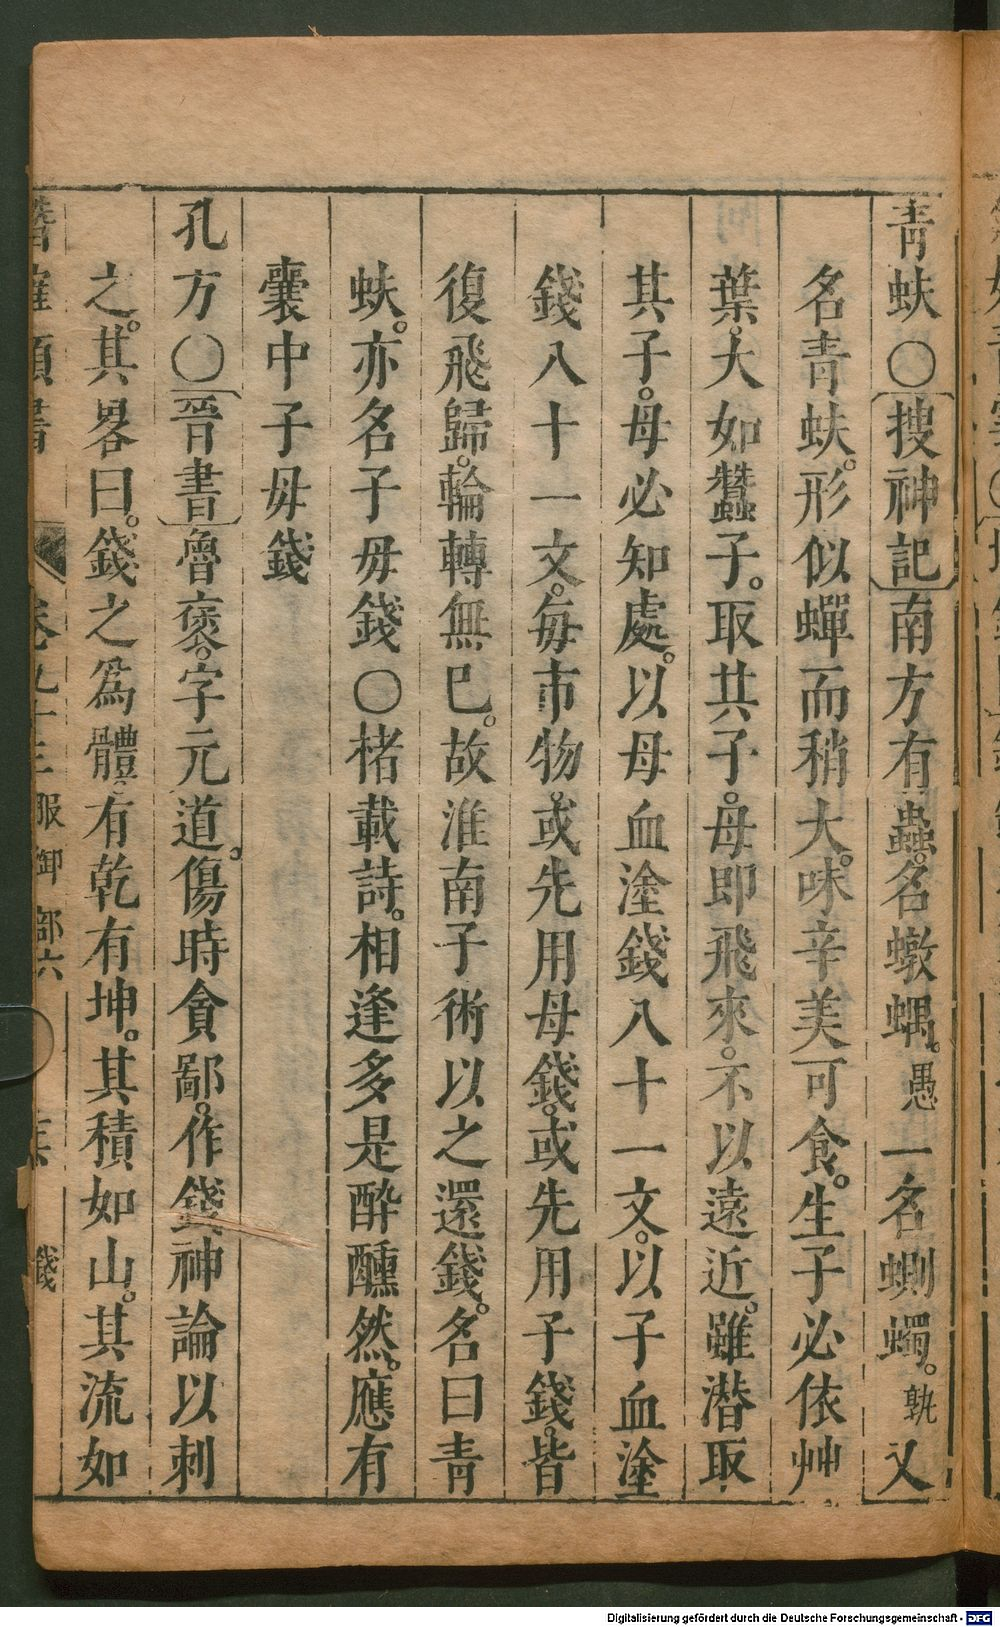 青蚨〇搜神記南方有蟲名蠍蝺愚一名蝍蠋孰又
名青蚨形似蟬而稍大味辛美可食生子必依艸
葉大如蠶子取其子母即飛來不以遠近雖潛取
其子母必知處以母血塗錢八十一文以子血塗
錢八十一文每市物或先用母錢或先用子錢皆
復飛歸輪轉無已故淮南子術以之還錢名曰青
蚨亦名子母錢〇楮載詩相逢多是酔醺然應有
囊中子毋錢
孔方〇晉書魯褒字元道傷時貪鄙作錢神論以刺
之其畧曰錢之爲體有乾有坤其積如山其流如
潛確類書 卷九十三 服御部六 錢
Digitalisierung gefördert durch die Deutsche Forschungsgemeinschaft - DFG